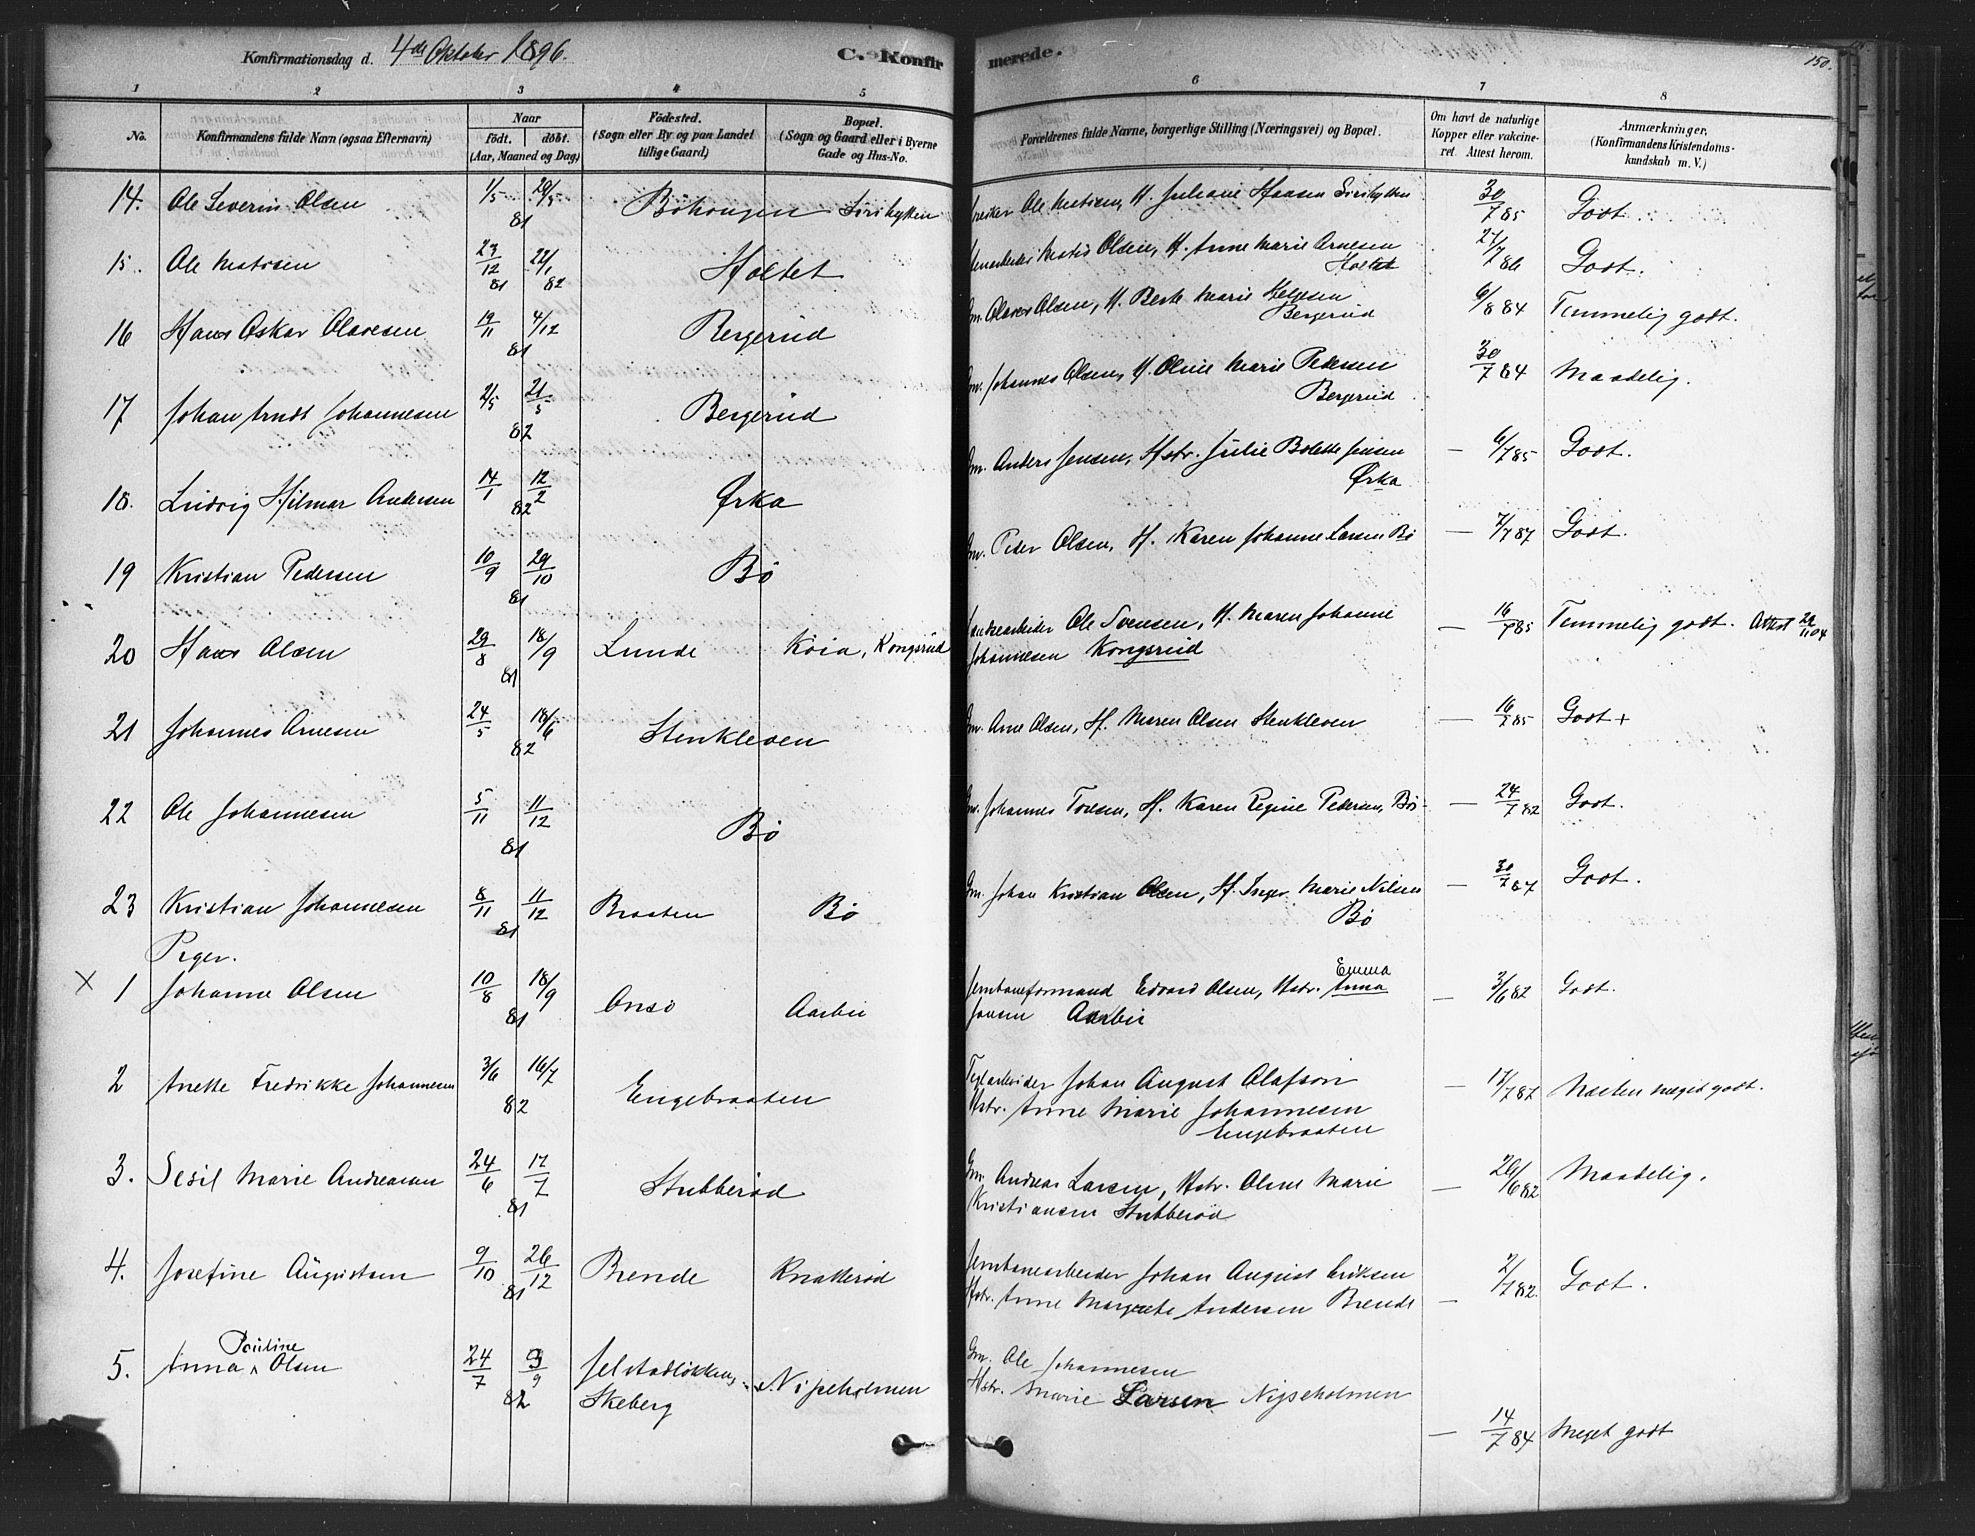 Konfirmationsdag d. 4de Oktober 1896. C. Konfir merede. 150.
1 2 3 4 5 6 7 8
No. Konfirmandens fulde Navn (ogsaa Efternavn) Naar født. døbt. (Aar, Maaned og Dag) Fødested. (Sogn eller By og paa Landet tillige Gaard) Bopæl. (Sogn og Gaard eller i Byerne Gade og Hus-No. Forældrenes fulde Navne, borgerlige Stilling (Næringsvei) og Bopæl. Om havt de naturlige Kopper eller vakcineret. Attest herom. Anmærkninger. (Konfirmandens Kristendomskundskab m. V.)
14. Ole Severin Olsen 1/5 29/5 81 Ole Matisen, H. Juliane Hansen 30/7 85 Godt.
15. Ole Matisen 23/12 81 22/1 82 Holtet Matis Olsen, H. Anne Marie Arnesen 27/7 86 Godt.
Holtet
16 Hans Oskar Olavesen 19/11 4/12 81 Bergerud Gm. Olaves Olsen, H. Berte Marie Helgesen 6/8 84 Temmelig godt.
Bergerud
17 Johan Arndt Johannesen 2/5 21/5 82 Bergerud Gm. Johannes Olsen, H. Oline Marie Pedersen 30/7 84 Maadelig.
Bergerud
18. Ludvig Hilmar Andersen 14/1 12/2 82 Ørka Gm. Anders Jensen, Hstr. Julie Bolette Jensen — 6/7 85 Godt.
Ørka
19 Kristian Pedersen 10/9 29/10 81 Bø Gm. Peder Olsen, H. Karen Johanne Larsen Bø — 7/7 87 Godt.
20 Hans Olsen 29/8 18/9 81 Lunde Koia, Kongsrud Ole Svensen, H. Maren Johanne — 16/7 85 Temmelig godt. Attest 29/11 04
Johannesen Kongsrud
21 Johannes Arnesen 24/5 18/6 82 Stenkleven Gm. Arne Olsen, H. Maren Olsen Stenkleven — 16/7 85 Godt +
22 Ole Johannesen 5/11 11/12 81 Bø Gm. Johannes Toresen, H. Karen Regine Pedersen, Bø — 24/7 82 Godt.
23 Kristian Johannesen 8/11 11/12 81 Braaten Bø Gm. Johan Kristian Olsen, H. Inger Marie Nilsen — 30/7 87 Godt.
Bø
Piger.
× 1 Johanne Olsen 10/8 18/9 81 Onsø Aarbu Jernbaneformand Edvard Olsen, Hstr. Emma Anna — 3/6 82 Godt.
Jansen Aarbu
2 Anette Fredrikke Johannesen 3/6 16/7 82 Engebraaten Teglarbeider Johan August Olafson — 17/7 87 Næsten meget godt.
Hstr. Anne Marie Johannesen
Engebraaten
3. Sesil Marie Andreasen 24/6 17/7 81 Stubberød Gm. Andreas Larsen, Hstr. Oline Marie — 26/6 82 Maadelig.
Kristiansen Stubberød
4. Josefine Augustsen 9/10 26/12 81 Brende Knatterød Jernbanearbeider Johan August Eriksen 2/7 82. Godt.
Hstr. Anne Margrete Andersen Brende —
5. Anna Pauline Olsen 24/7 3/9 82 Jelstadløkken, Skeberg Nipeholmen Gm. Ole Johannesen
Hstr. Marie Larsen Nipeholmen
— 14/7 84 Meget godt